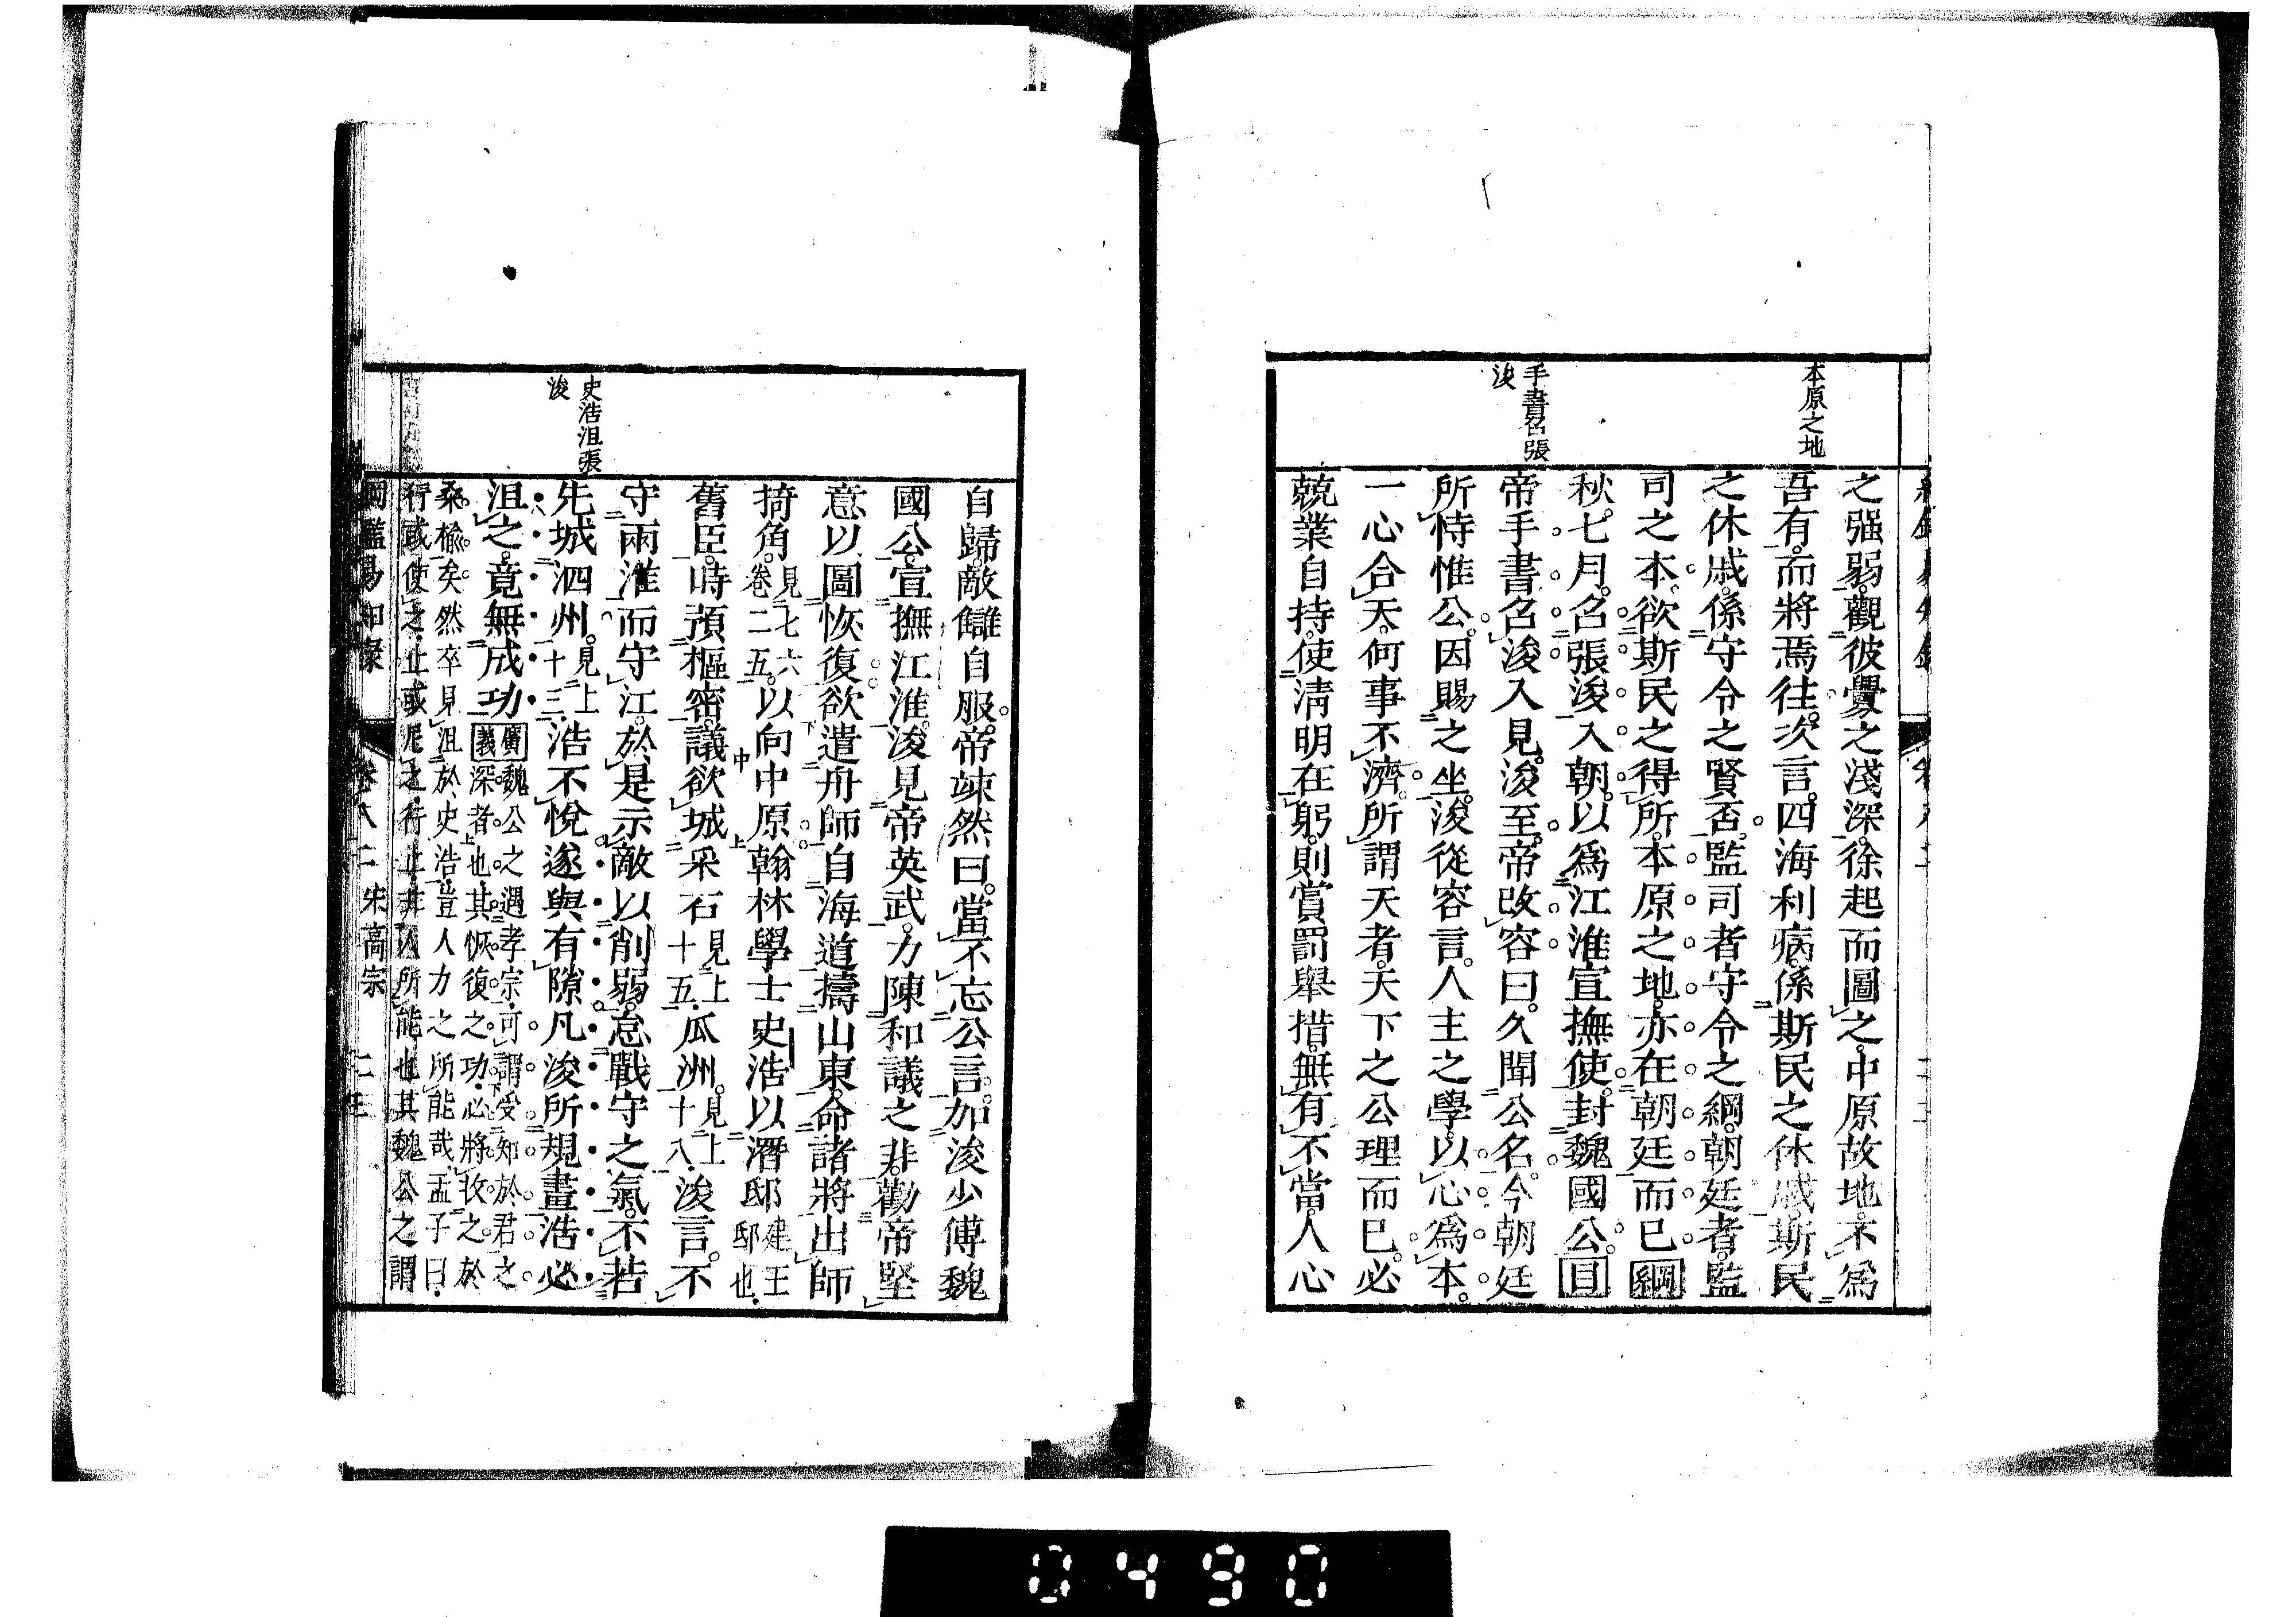 本原之地
手書召張
浚
之强弱。觀彼釁之淺深。徐起而圖之。中原故地。不爲
吾有。而將焉往。次言。四海利病。係斯民之休戚。斯民
之休戚。係守令之賢否。監司者守令之綱。朝廷者。監
司之本。欲斯民之得所。本原之地。亦在朝廷而已綱
秋。七月。召張浚入朝。以爲江淮宣撫使。封魏國公。目
帝手書召浚入見。浚至。帝改容曰。久聞公名。今朝廷
所恃惟公。因賜之坐。浚從容言。人主之學。以心爲本。
一心合天。何事不濟。所謂天者。天下之公理而已。必
兢業自持。使淸明在躬。則賞罰舉措。無有不當。人心
史浩沮張
浚
自歸。敵讎自服。帝竦然曰。當不忘公言。加浚少傅魏
國公。宣撫江淮。浚見帝英武。力陳和議之非。勸帝堅
意以圖恢復。欲遣舟師自海道擣山東。命諸將出師
掎角。見七六卷二五。以向中原。翰林學士史浩以潛邸建王邸也.
舊臣。時預樞密議。欲城采石見上十五.瓜洲。見上十八.浚言。不
守兩淮而守江。於是示敵以削弱。怠戰守之氣。不若
先城泗州。見上十三.浩不悅。遂與有隙。凡浚所規畫。浩必
沮之。竟無成功廣義魏公之遇孝宗.可謂受知於君之
深者也.其恢復之功.必將收之於
桑楡矣.然卒見沮於史浩.豈人力之所能哉.孟子曰.
行或使之.止或尼之.行止.非人所能也.其魏公之謂
綱鑑易知錄 卷八二 宋高宗
0490